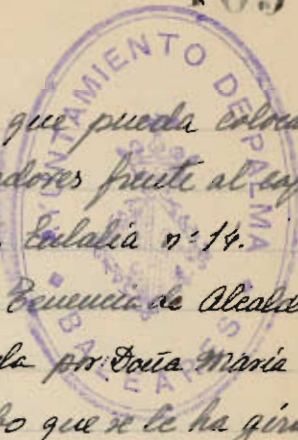 AYUNTAMIENTO DE PALMA
BALEARES
que pueda coloca
dores frente al caf
Eulalia nº 14.
Tenencia de Alcald
la por Doña María
bo que se le ha gira